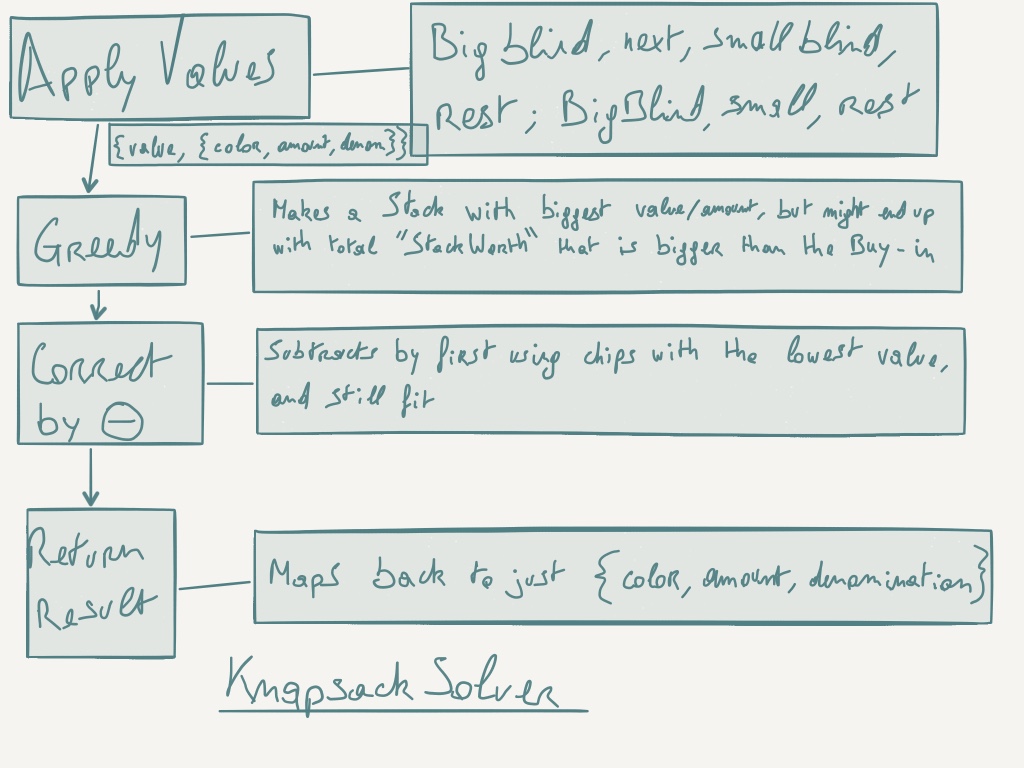 Apply Values
Big blind, next, small blind,
Rest ; BigBlind, small, rest
{value, {color, amount, denom}}
Greedy
Makes a Stack with biggest value/amount, but might end up
with total "StackWorth" that is bigger than the Buy-in
Correct
by ⊖
Subtracts by first using chips with the lowest value,
and still fit
Return
Result
Maps back to just {color, amount, denomination}
Knapsack Solver